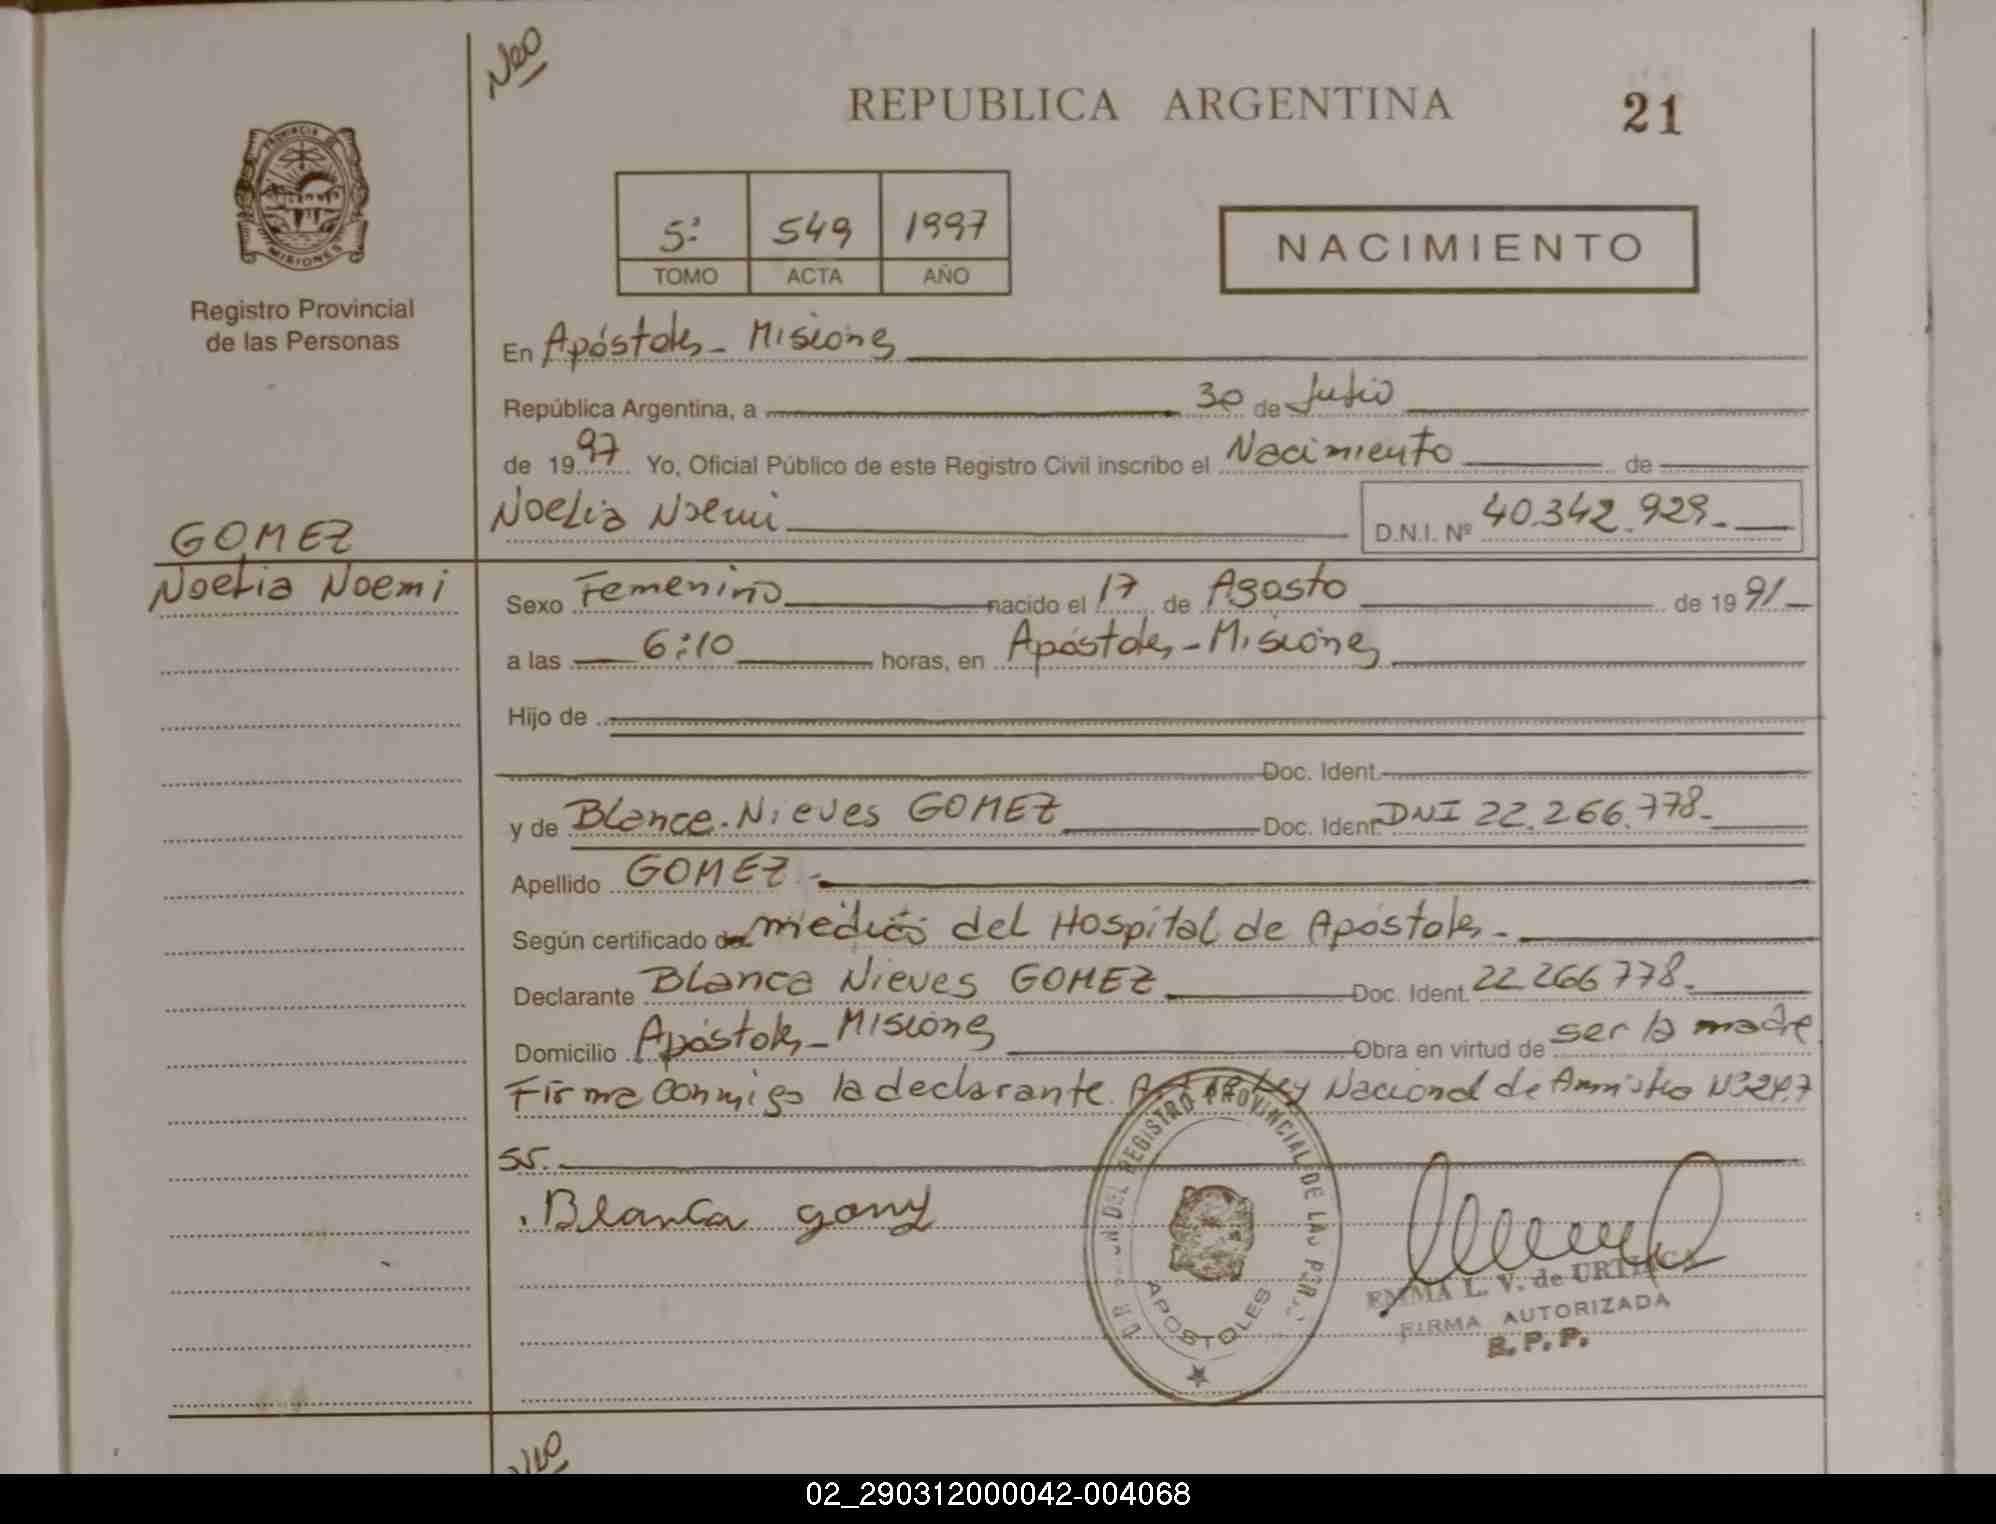 Neo
REPUBLICA ARGENTINA
21
PROVINCIA
MISIONES
Registro Provincial
de las Personas
5º 549 1997
TOMO ACTA AÑO
NACIMIENTO
En Apóstoles - Misiones
República Argentina, a 30 de Julio
de 1997 Yo, Oficial Público de este Registro Civil inscribo el Nacimiento de
Noelia Noemi D.N.I. Nº 40.342.929.-
GOMEZ
Noelia Noemi
Sexo Femenino nacido el 17 de Agosto de 1991
a las 6:10 horas, en Apóstoles - Misiones
Hijo de
Doc. Ident.
y de Blanca Nieves GOMEZ Doc. Ident. DNI 22.266.778.-
Apellido GOMEZ.-
Según certificado de medico del Hospital de Apóstoles.-
Declarante Blanca Nieves GOMEZ Doc. Ident. 22.266.778.-
Domicilio Apóstoles - Misiones Obra en virtud de ser la madre.
Firma conmigo la declarante. Ley Nacional de Amnistia Nº 24.7
55.-
Blanca gomez
REGISTRO PROVINCIAL DE LAS PERS.
APOSTOLES
EMMA L. V. de
FIRMA AUTORIZADA
R. P. P.
02_290312000042-004068